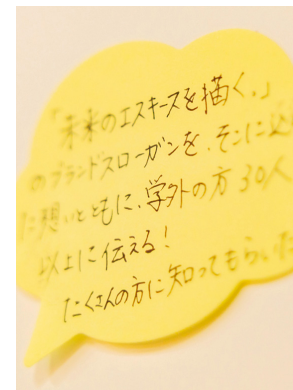 「未来のエスキースを描く。」
のブランドスローガンを、そこに込
た想いとともに、学外の方30人
以上に伝える!
たくさんの方に知ってもらいた